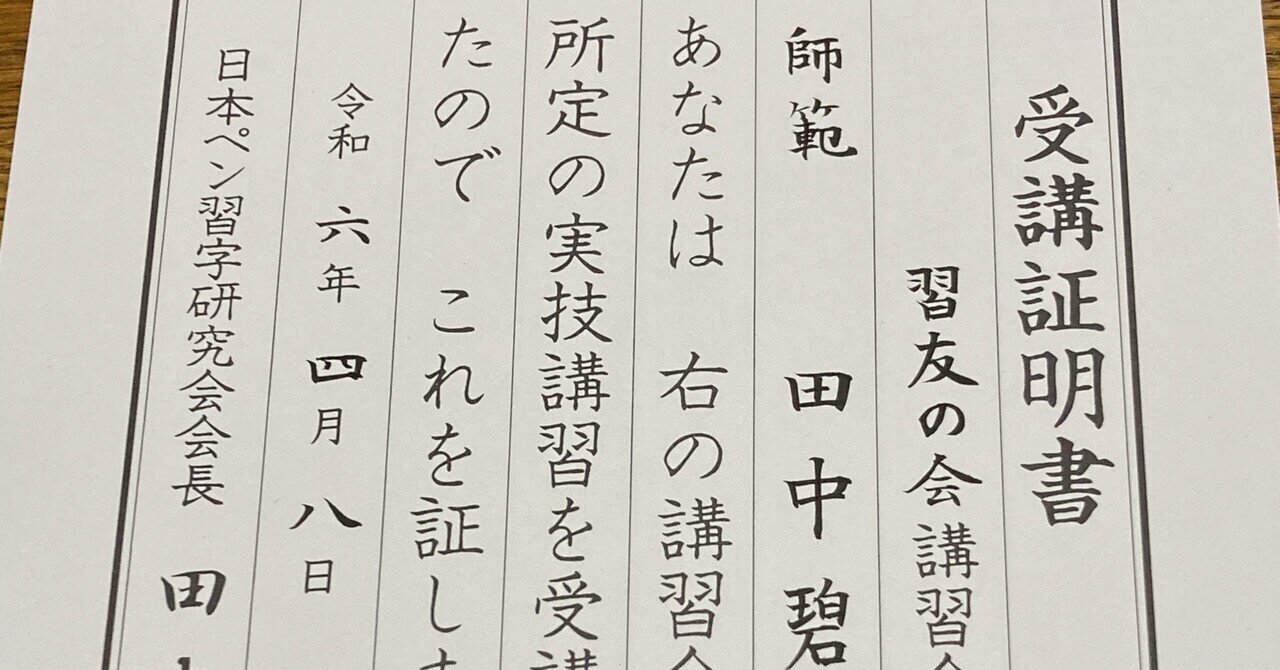 受講証明書
習友の会講習会
師範 田中碧
あなたは 右の講習会
所定の実技講習を受講
たので これを証しま
令和 六年 四月 八日
日本ペン習字研究会会長 田